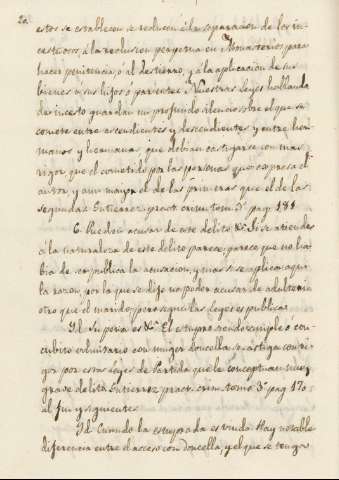 20
estos se establecen se reducen á la separacion de los in-
cestuosos, á la reclusion perpetua en Monasterios para
hacer penitencia, ó al destierro, y á la aplicacion de sus
bienes á sus hijos ó parientes. Nuestras leyes hablando
de incesto guardan un profundo silencio sobre el que se
comete entre ascendientes y descendientes y entre her-
manos y hermanas, que debian castigarse con mas
rigor que el cometido por las personas que expresa el
autor, y aun mayor el de las primeras que el de las
segundas. Gutierrez pract. crim. tom. 3º pag. 181
6. Puedese acusar de este delito &ª Si se atiende
á la naturaleza de este delito parece, parece que no ha-
bia de ser publica la acusacion, y mas si se aplica aqui
la razon, por la que se dijo no poder acusar de adulterio
otro que el marido; pero segun las leyes es publica.
Id. Su pena es &ª El estupro siendo simple o con-
cubito voluntario con muger doncella se castiga con ri-
gor por estas leyes de Partida que le conceptuan muy
grave delito. Gutierrez pract. crim. tomo 3º pag 170
al fin y siguientes
Id. Cuando la estuprada es viuda. Hay notable
diferencia entre el acceso con doncella, y el que se tenga